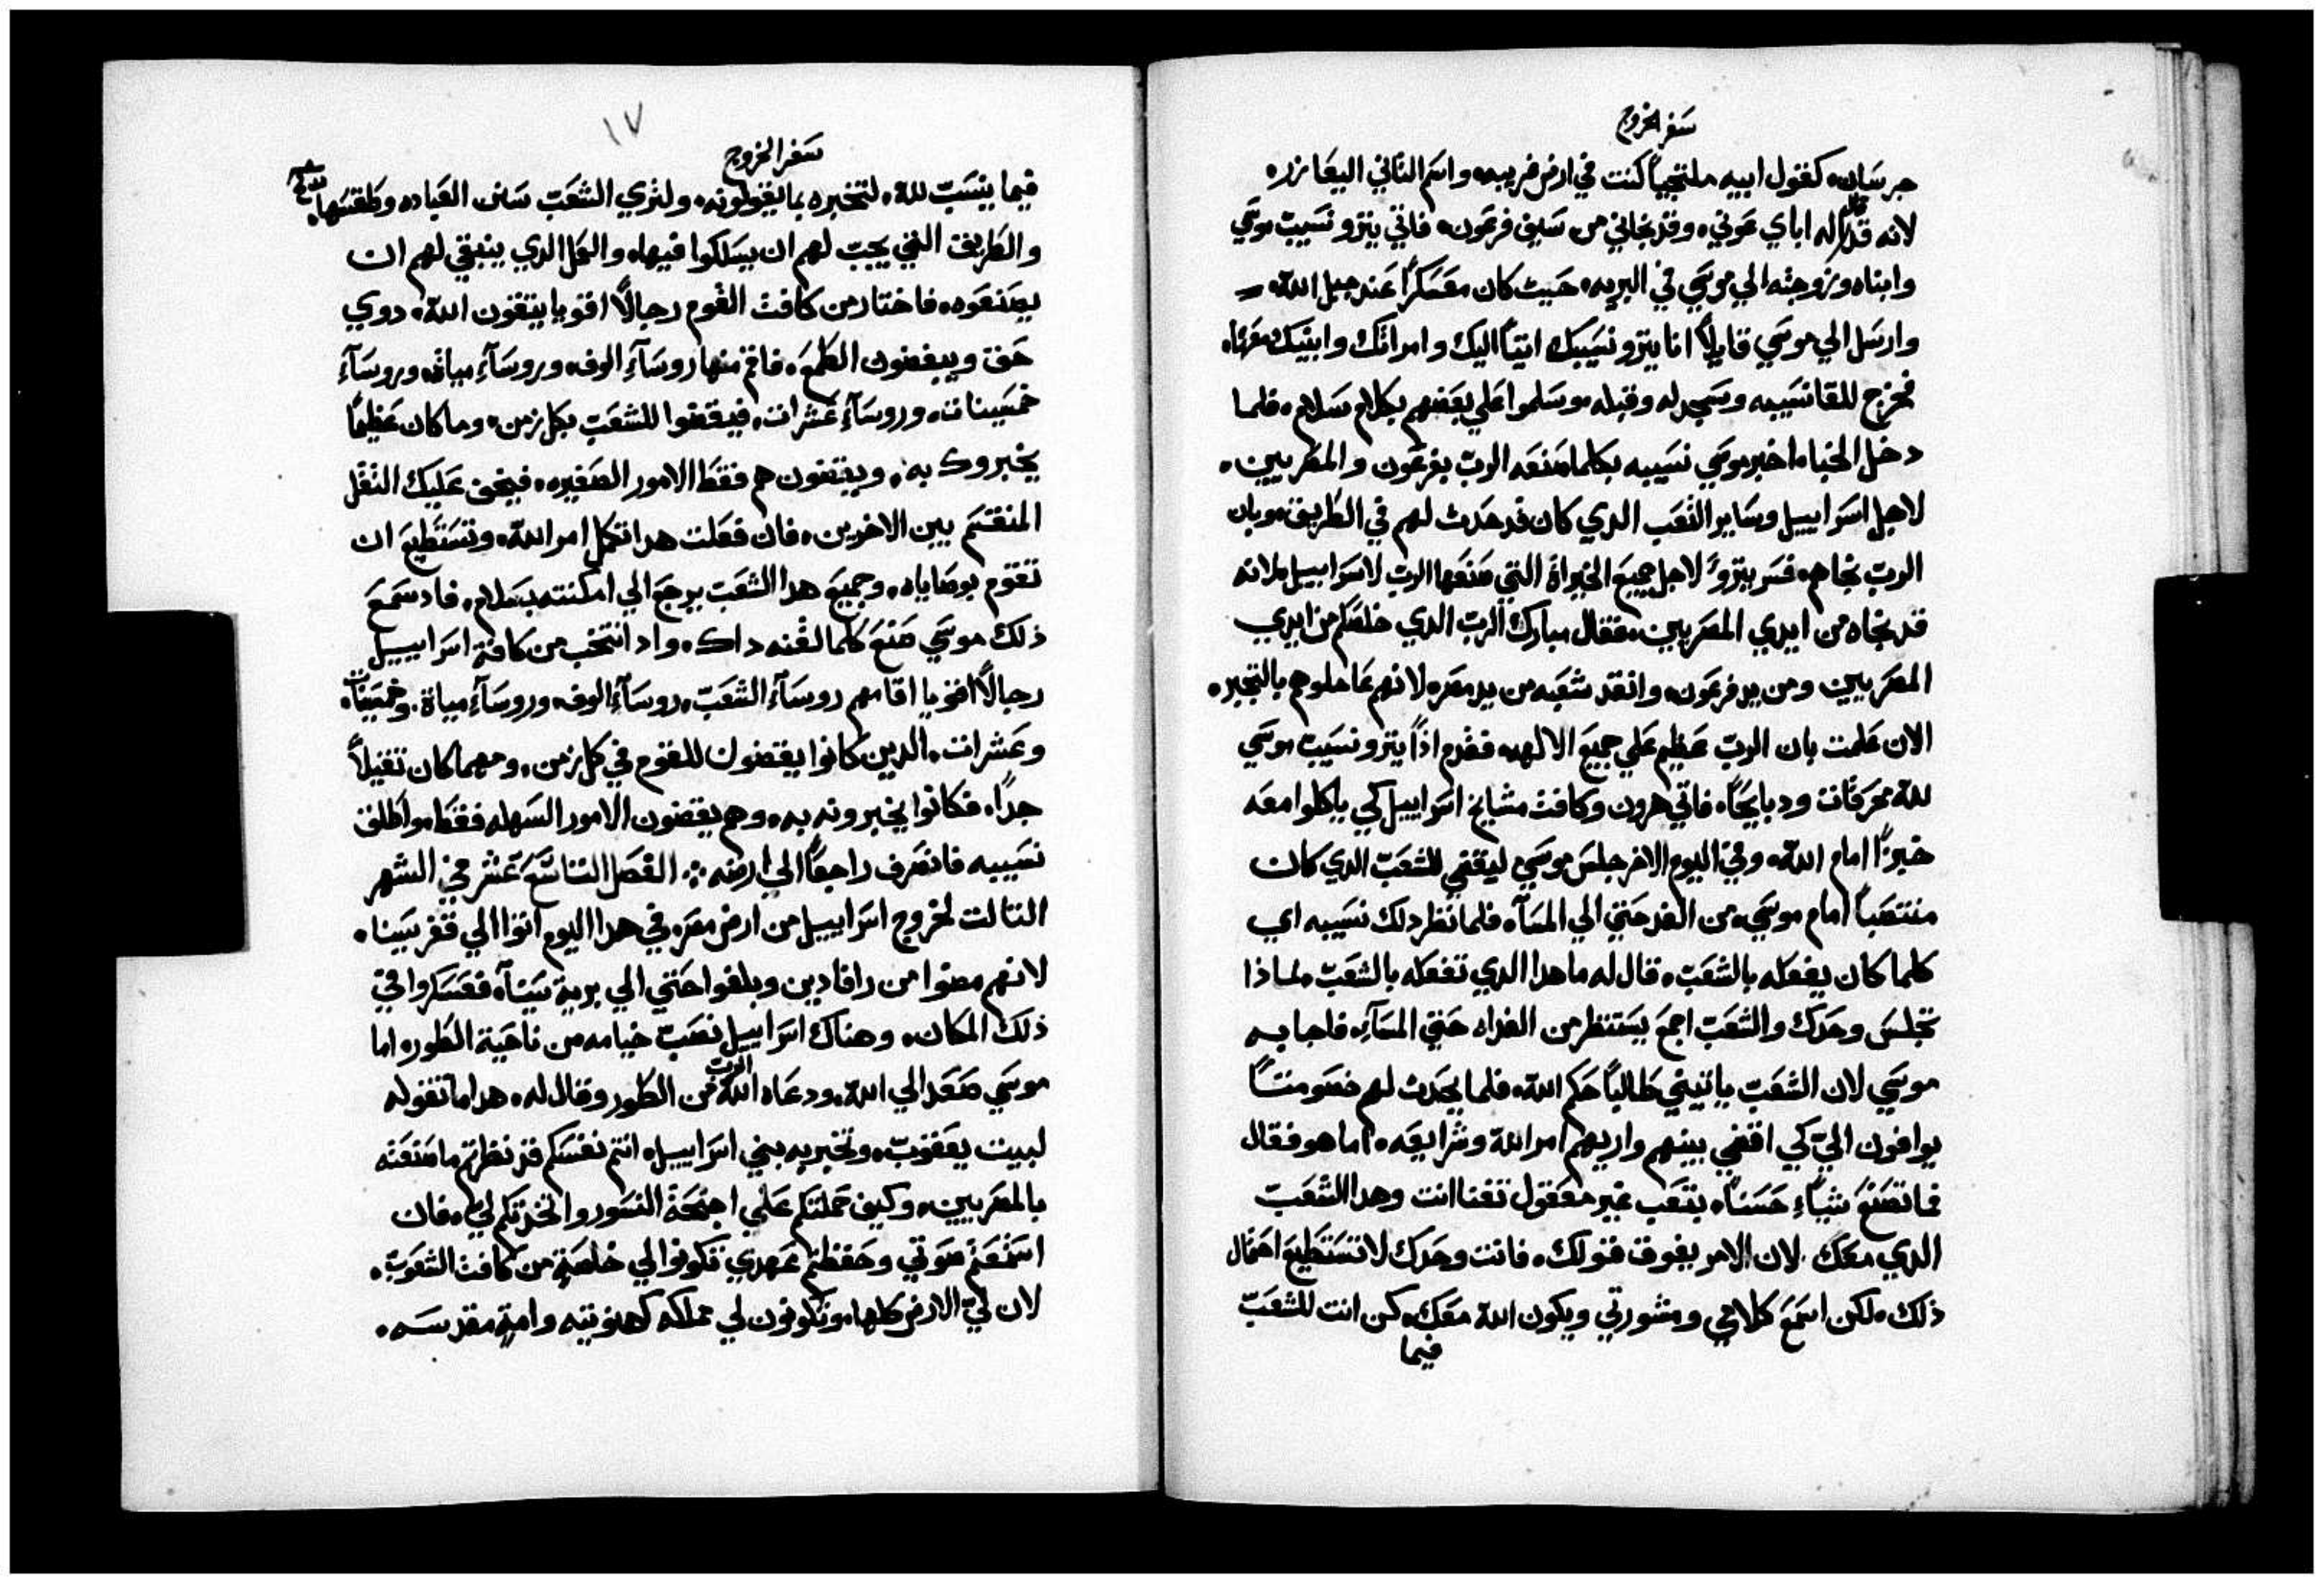 سفر الخروج
جرسان، كقول ابيه ملتجياً كنت في ارض غريبه، واسم التاني اليعازر،
لانه قال اله اباي عوني، وقد نجاني من سيف فرعون، فاتي يترو نسيب موسي
وابناه وزوجته الي موسي في البريه، حيت كان معسكراً عند جبل الله،
وارسل الي موسي قايلاً انا يترو نسيبك اتياً اليك وامراتك وابنيك معها،
فخرج للقا نسيبه وسجد له وقبله، وسلموا علي بعضهم بكلام سلام، فلما
دخل الخباء اخبر موسي نسيبه بكلما صنعه الرب بفرعون والمصريين،
لاجل اسراييل وساير التعب الدي كان قد حدث لهم في الطريق، وبان
الرب نجاهم، فسر يترو لاجل جميع الخيراة التي صنعها الرب لاسراييل، لانه
قد نجاه من ايدي المصريين، فقال مبارك الرب الدي خلصكم من ايدي
المصريين ومن يد فرعون، وانقد شعبه من يد مصر، لانهم عاملوهم بالتجبر،
الان علمت بان الرب عظيم علي جميع الالهه فقدم اذاً يترو نسيب موسي
لله محرقات ودبايحاً، فاتي هرون وكافت مشايخ اسراييل كي ياكلوا معه
خبزاً امام الله، وفي اليوم الاخر جلس موسي ليقضي للشعب الدي كان
منتصباً امام موسي، من الغد حتي الي المسآء فلما نظر دلك نسيبه اي
كلما كان يفعله بالشعب، قال له ما هدا الدي تفعله بالشعب، لماذا
تجلس وحدك والشعب اجمع يستنظر من الغداه حتي المسآء، فاجابه
موسي لان الشعب ياتيني طالباً حكم الله، فلما يحدت لهم خصومتاً
يوافون اليّ كي اقضي بينهم واريهم امر الله وشرايعه، اما هو فقال
فما تصنع شياء حسناً، بتعب غير معقول تفنا انت وهدا الشعب
الدي معك لان الامر يفوق قولك، فانت وحدك لا تستطيع احتمال
ذلك، لكن اسمع كلامي ومشورتي ويكون الله معك، كن انت للشعب
فيما
١٧
سفر الخروج
فيما ينسب لله، لتخبره بما يقولونه، ولتري الشعب سنن العباده وطقسها،
والطريق التي يجب لهم ان يسلكوا فيها، والعمل الدي ينبغي لهم ان
يصنعوه، فاختار من كافت القوم رجالاً اقويا يتقون الله، دوي
حق ويبغضون الطمع، فاقم منها روسآء الوف، وروسآء مياة، وروسآء
خمسينات، وروسآء عشرات، فيقضوا للشعب بكل زمن، وما كان عظيماً
يخبروك به، ويقضون هم فقط الامور الصغيره، فيخف عليك التقل
المنقسم بين الاخرين، فان فعلت هدا تكمل امر الله، وتستطيع ان
تقوم بوصاياه، وجميع هدا الشعب يرجع الي امكنته بسلام، فاد سمع
ذلك موسي صنع كلما لقنه داك، واد انتخب من كافة اسراييل
رجالاً اقويا اقامهم روسآء الشعب، روسآء الوف، وروسآء مياة، وخمسينات
وعشرات، الدين كانوا يقضون للقوم في كل زمن، ومهما كان تقيلاً
جداً، فكانوا يخبرونه به، وهم يقضون الامور السهله فقط، واطلق
نسيبه فانصرف راجعاً الي ارضه ⁘ الفصل التاسع عشر في الشهر
التالت لخروج اسراييل من ارض مصر، في هدا اليوم اتوا الي قفر سينا،
لانهم مضوا من رافادين وبلغوا حتي الي برية سينآء، فعسكروا في
ذلك المكان، وهناك اسراييل نصب خيامه من ناحية الطور، اما
موسي صعد الي الله، ودعاه الله الرب من الطور وقال له، هدا ما تقوله
لبيت يعقوب، وتخبر به بني اسراييل، انتم نفسكم قد نظرتم ما صنعته
بالمصريين، وكيف حملتكم علي اجنحة النسور واتخدتكم لي، فان
استمعتم صوتي وحفظتم عهدي تكونوا لي خاصة من كافت الشعوب،
لان لي الارض كلها، وتكونون لي مملكه كهنوتيه وامة مقدسه،